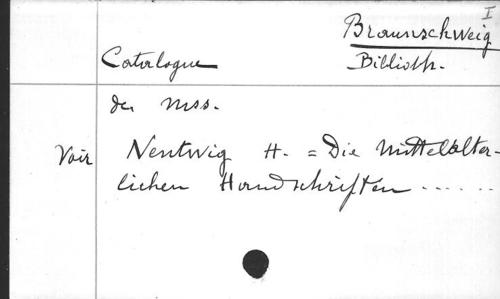 I
Braunschweig
Catalogue Biblioth.
des mss.
Voir Nentwig H. = Die Mittelalter-
lichen Handschriften ......